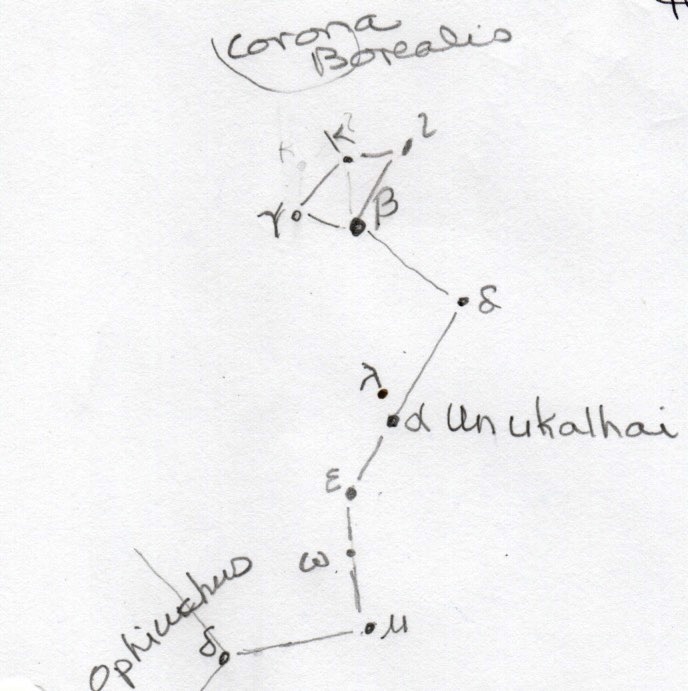 Corona
Borealis
K 2
ι
γ
β
δ
λ
α Unukalhai
ε
ω
μ
δ
Ophiuchus